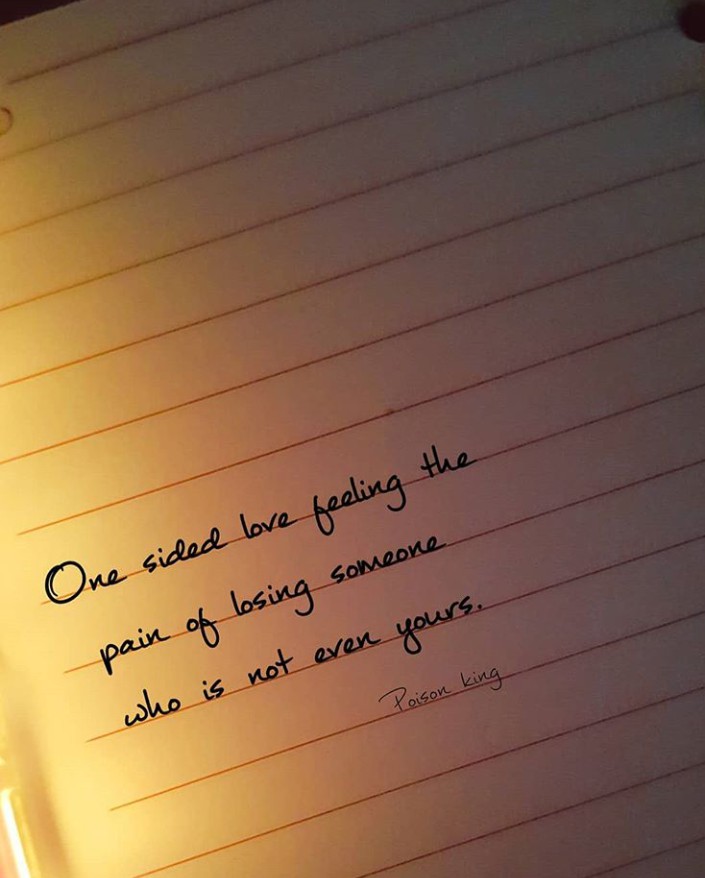 One sided love feeling the
pain of losing someone
who is not even yours.
Poison king